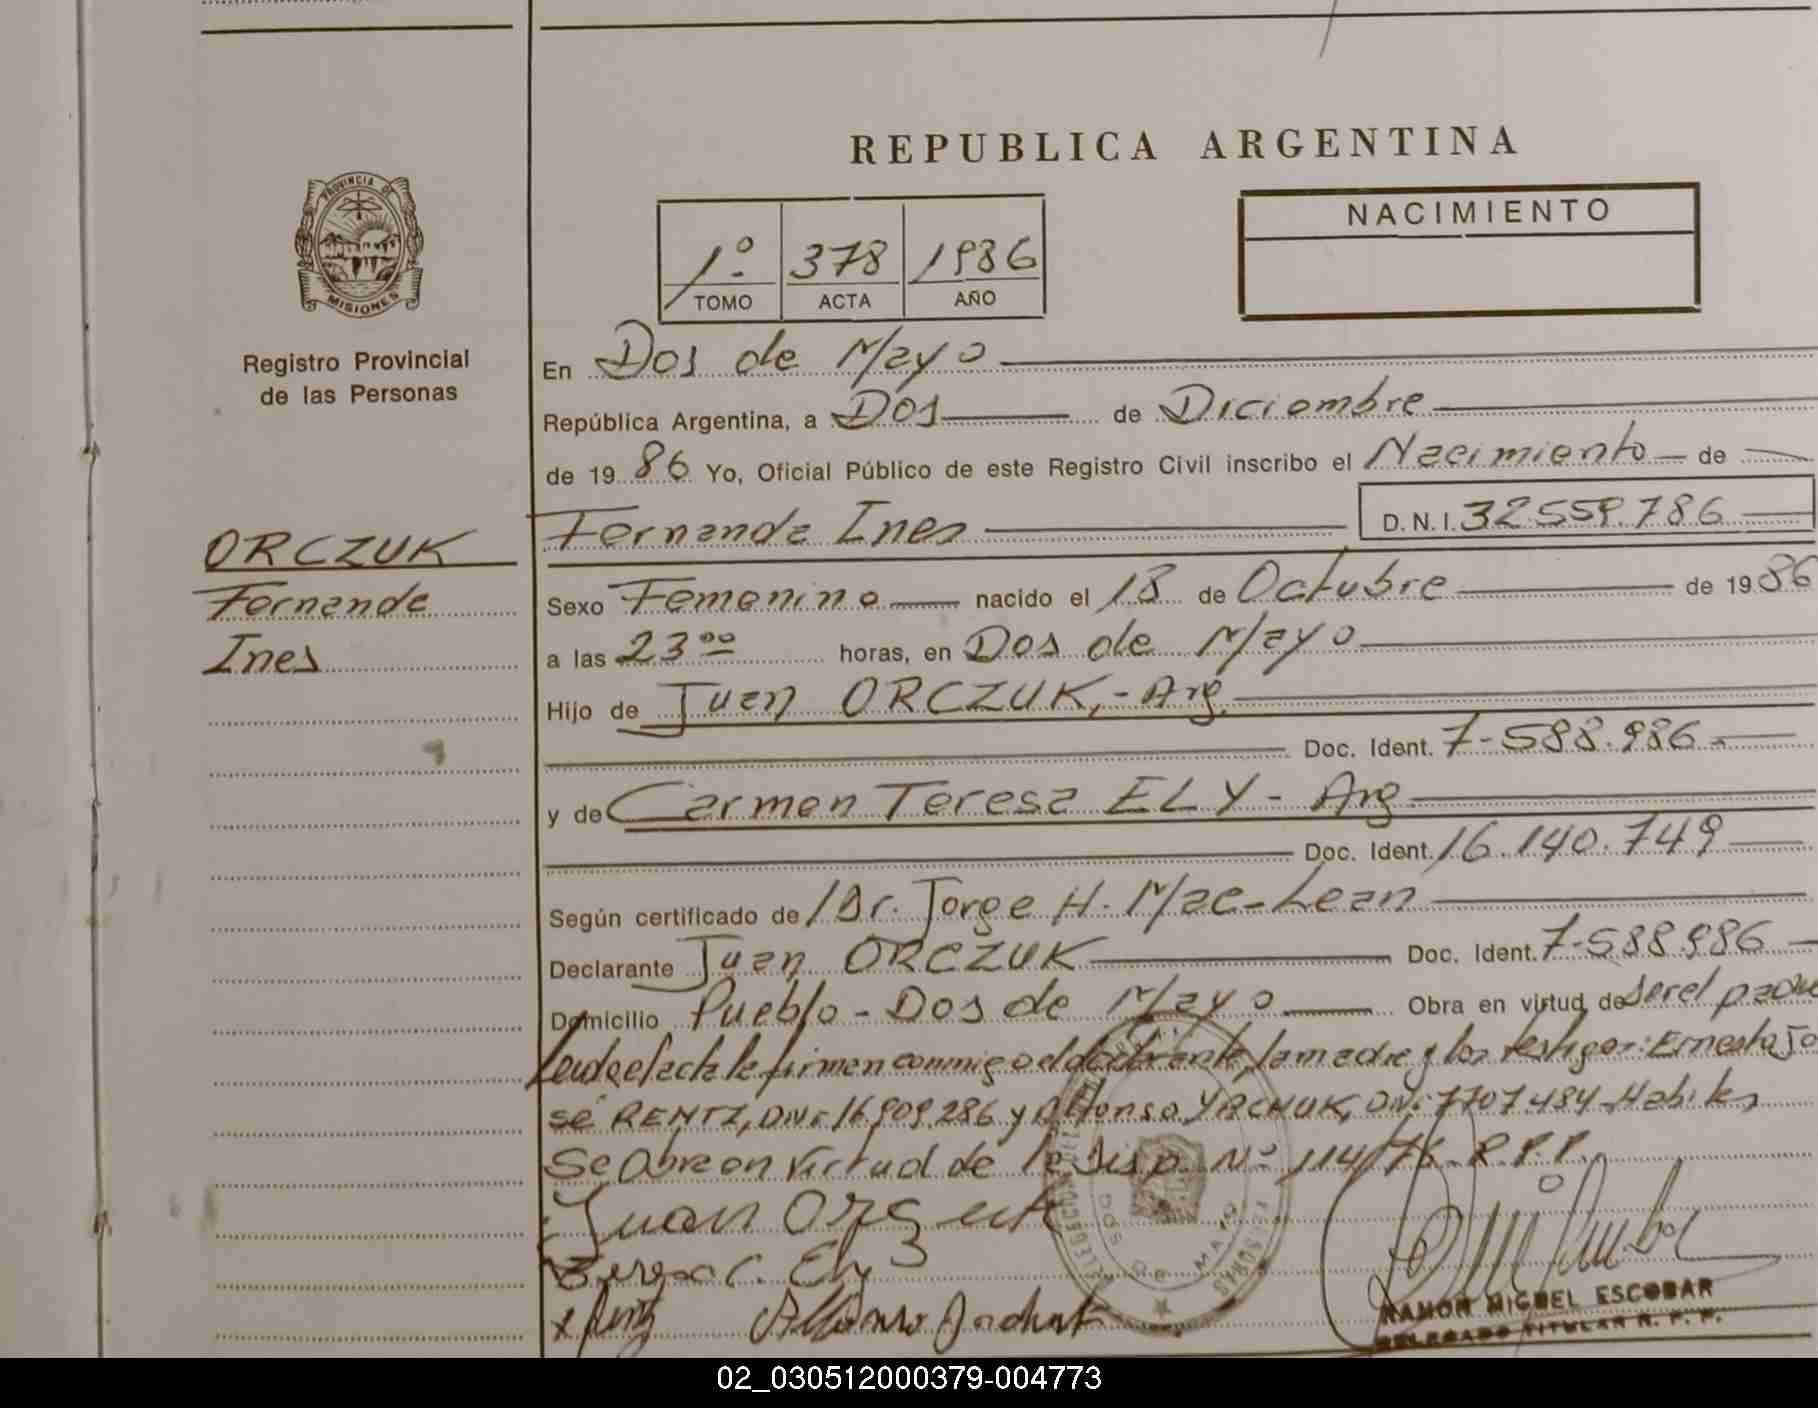 REPUBLICA ARGENTINA
PROVINCIA DE
MISIONES
Registro Provincial
de las Personas
1º 378 1986
TOMO ACTA AÑO
NACIMIENTO
En Dos de Mayo
República Argentina, a Dos de Diciembre
de 19 86 Yo, Oficial Público de este Registro Civil inscribo el Nacimiento de
Fernanda Ines D.N.I. 32.559.786
ORCZUK
Fernanda
Ines
Sexo Femenino nacido el 18 de Octubre de 19 86
a las 23 ºº horas, en Dos de Mayo
Hijo de Juan ORCZUK, - Arg.
Doc. Ident. 7.588.986
y de Carmen Teresa ELY - Arg
Doc. Ident. 16.140.749
Según certificado de Dr. Jorge H. Mac-Lean
Declarante Juan ORCZUK Doc. Ident. 7.588.986
Domicilio Pueblo - Dos de Mayo Obra en virtud de ser el padre
Leida el acta la firman conmigo el declarante, la madre y los testigos: Ernesto Jo
sé RENTZ, DNI 16.909.286 y Alfonso YACHUK, DNI. 7707484 Habiles
Se Abre en Virtud de la Disp. Nº 114/76 R.P.P.
Juan Orzeuk
Teresa C. Ely
DOS DE MAYO
RAMON MIGUEL ESCOBAR
DELEGADO TITULAR R. P. P.
02_030512000379-004773